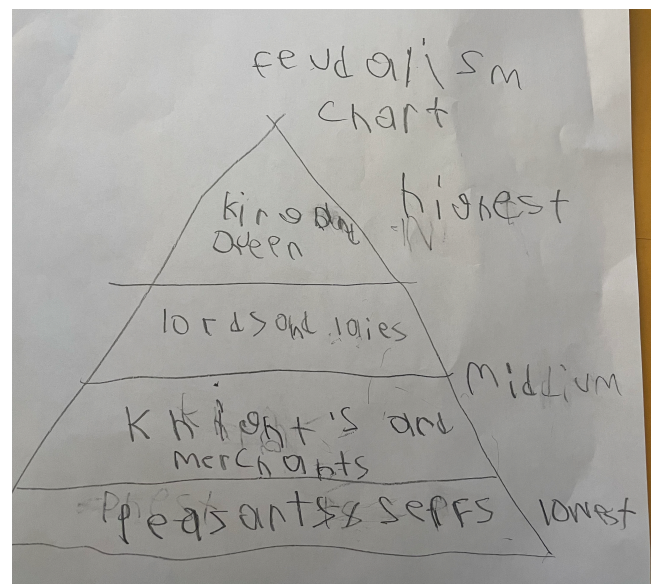 feudalism
chart
king and
Queen
highest
lords and laies
Middium
Knight's and
merchants
Ppeasants & serfs
lowest